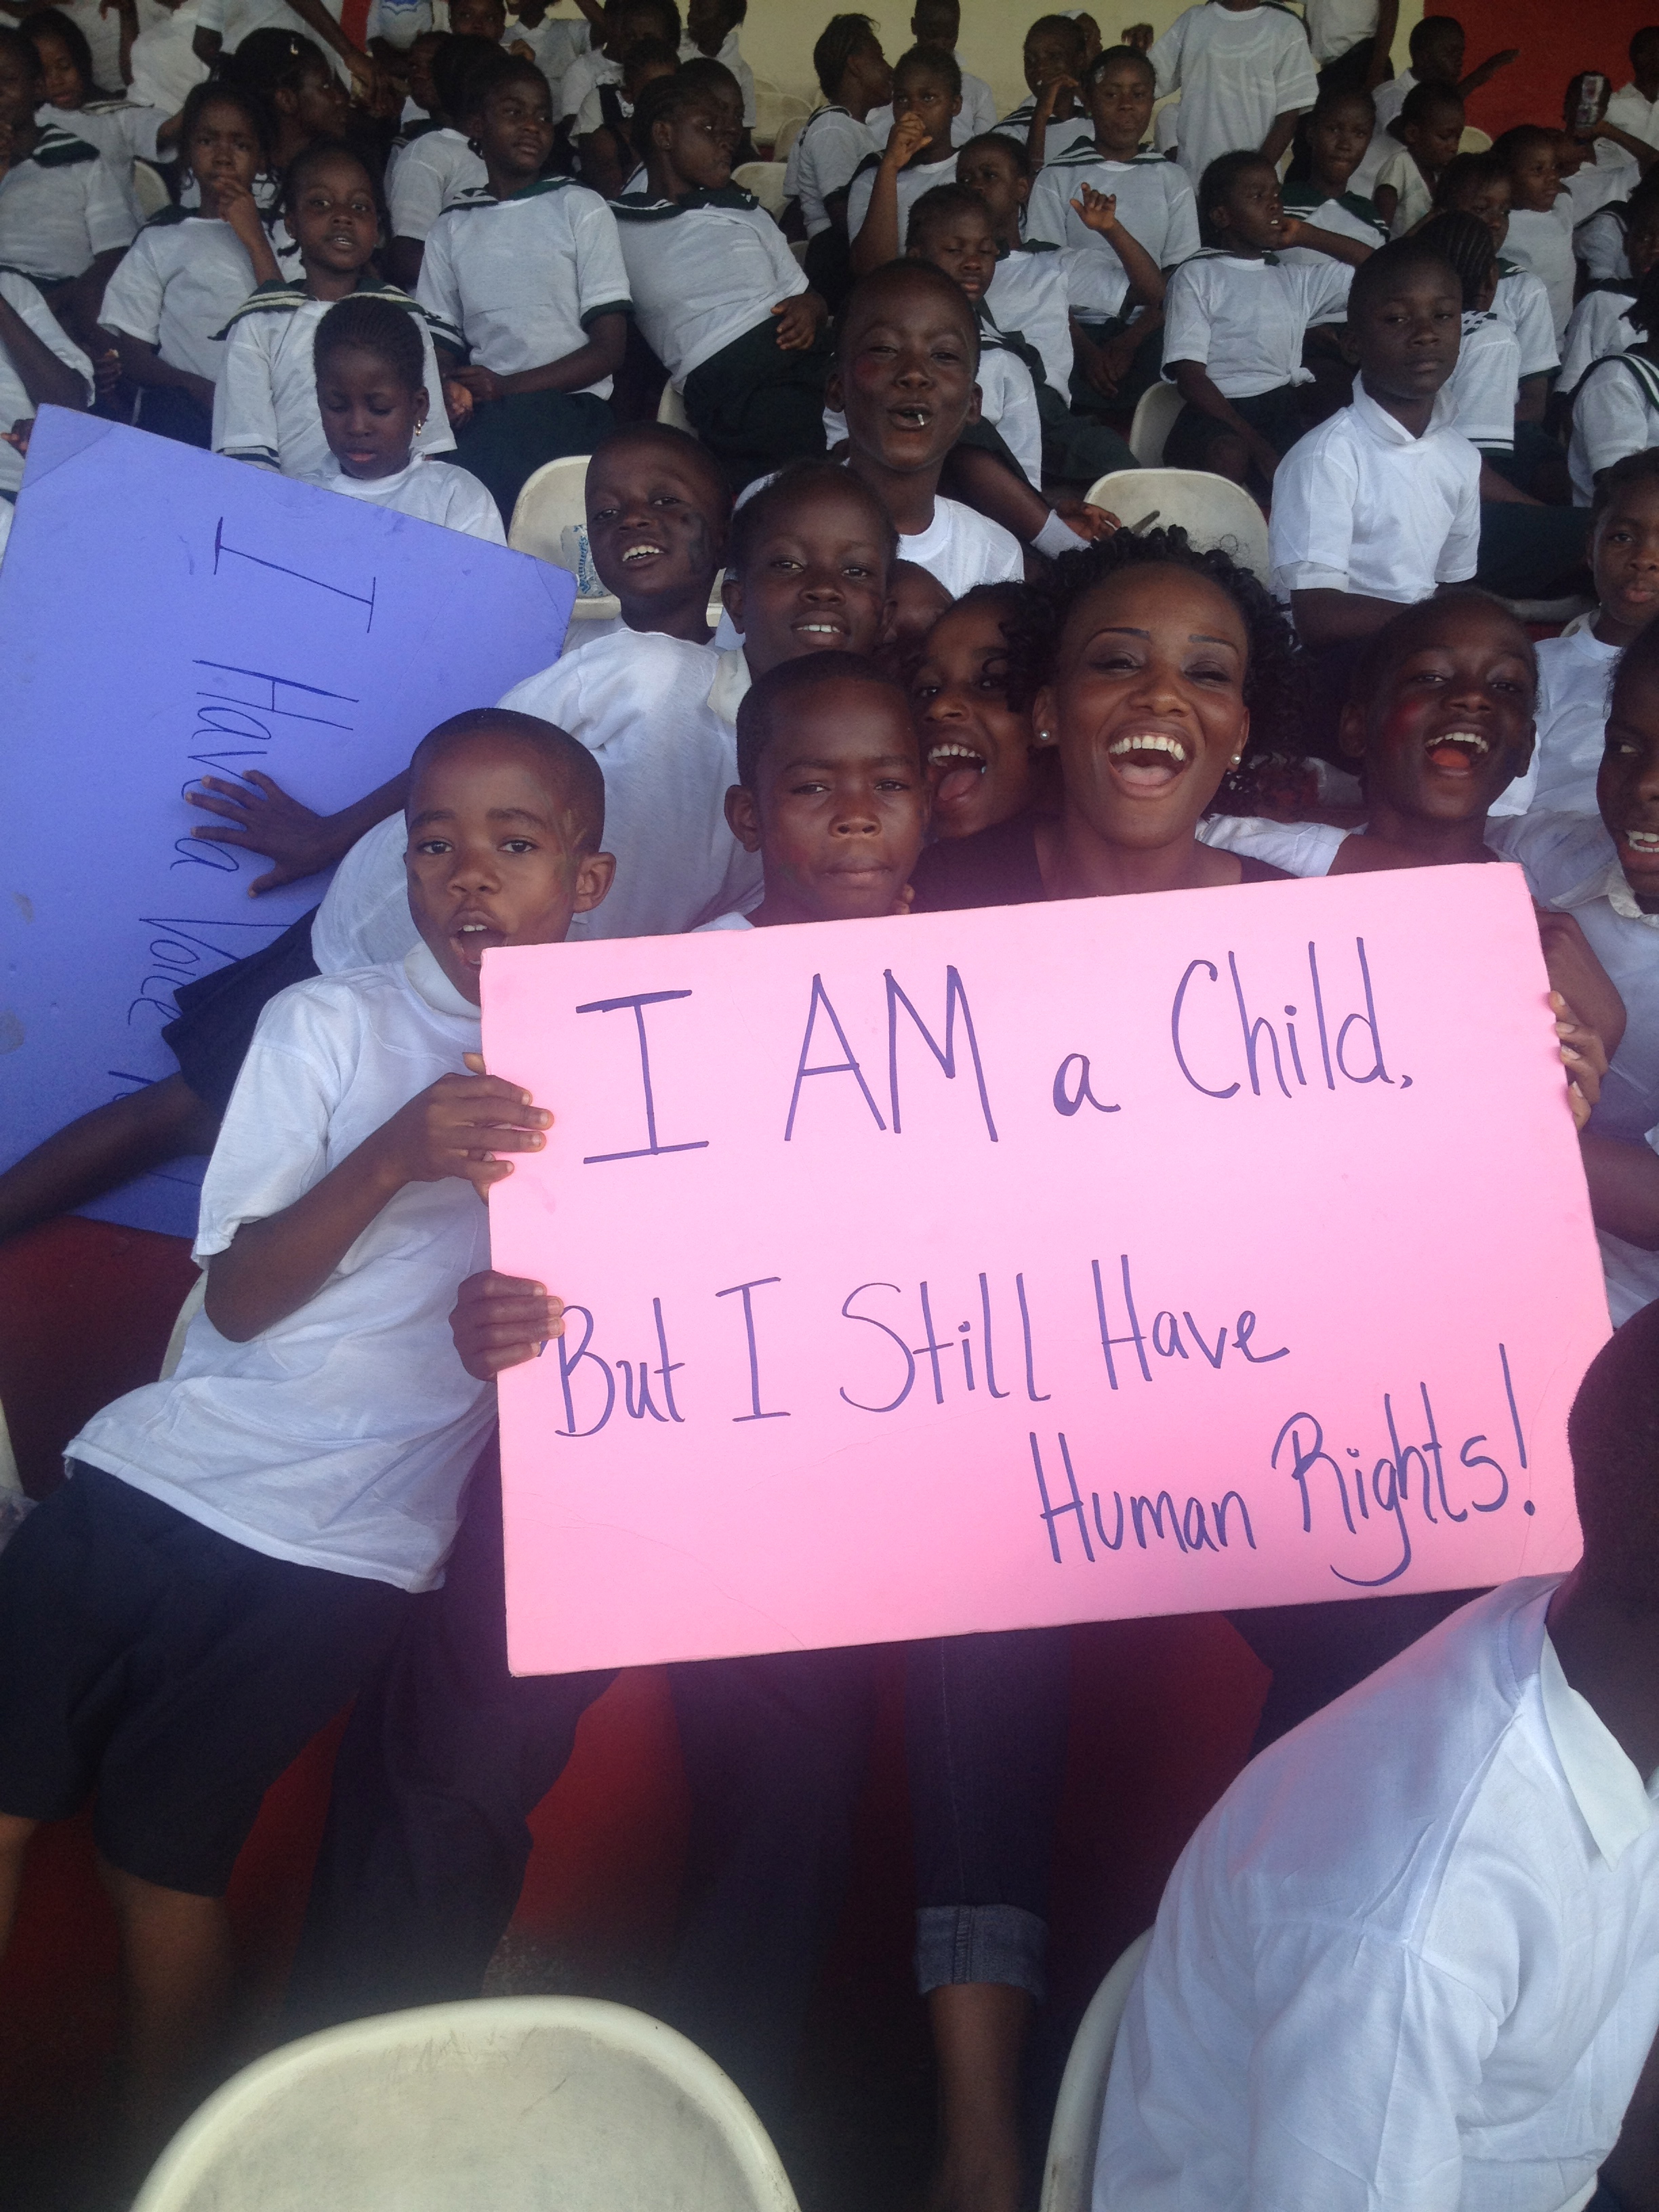 I Have a Voice
I AM a Child.
But I Still Have
Human Rights!